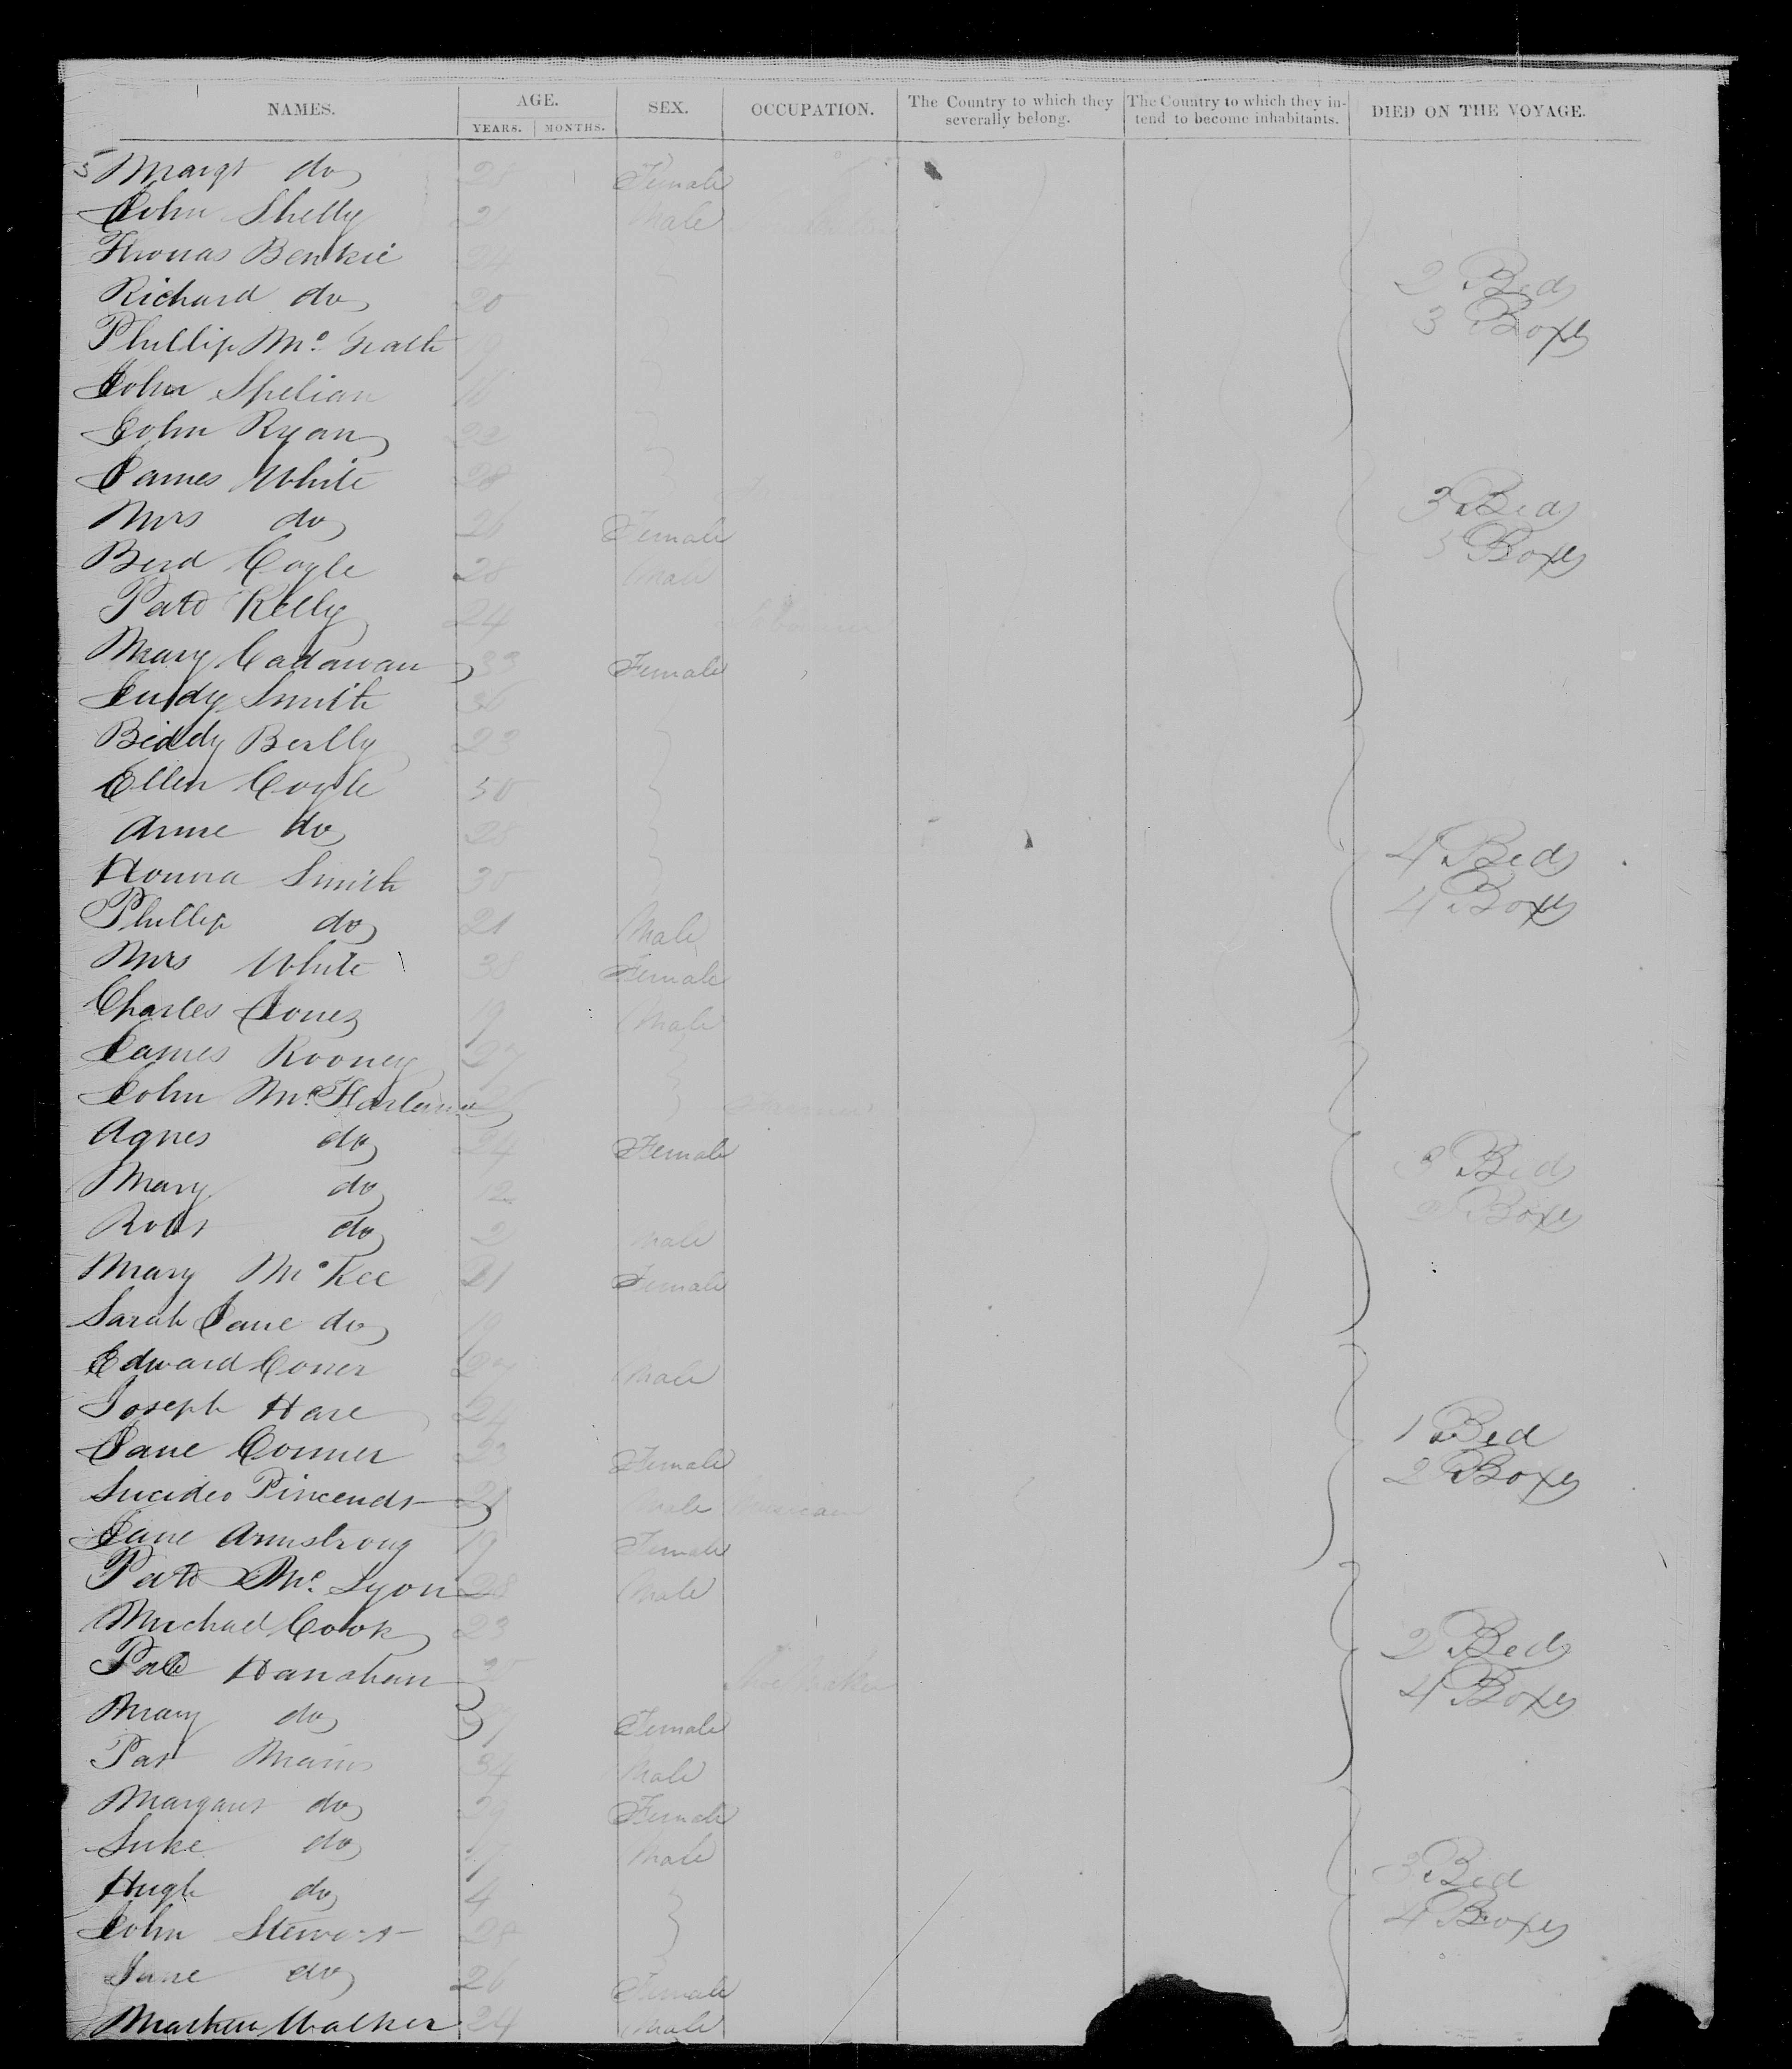 NAMES. AGE. SEX. OCCUPATION. The Country to which they severally belong. The Country to which they intend to become inhabitants. DIED ON THE VOYAGE.
YEARS. MONTHS.
Margt do Female
John Shelly Male
Thomas Benkie 24
Richard do 20 2 Beds
Phillip Mc 19 3 Boxes
John Spelian 16
John Ryan
James White 28 3 Beds
Mrs do 26 Female Boxes
Berd Cogle 28 Male
Patd Kelly 24
Mary Cadawan 33 Female
Judy Smith 36
Biddy Berlly 23
Ellen Cogle 30
Anne do 28 4 Beds
Honora Smith 30 4 Boxes
Phillip do 21 Male
Mrs White 38 Female
Charles Jones 19 Male
James Rooney 27
John Farmer
Agnes do 24 Female 3 Beds
Mary do 12 2 Boxes
Robt do 2 Male
Mary McKee 21 Female
Sarah Jane do 19
Edward Coner 27 Male
Joseph Hare 24 1 Bed
Jane Conner 23 Female 2 Boxes
21 Male Musician
Jane Armstrong 19 Female
Patd Mc Lyon 28 Male
Michael Cook 23 2 Beds
Patd Hanahan Shoe Maker 4 Boxes
Mary do Female
Pat 34 Male
Margaret do 29 Female
Luke do Male 3 Bed
Hugh do 4 4 Boxes
John Stewart
Jane do 26 Female
Walker 24 Male